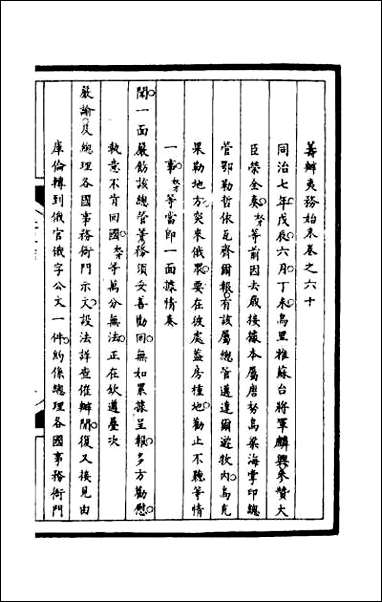 籌辦夷務始末卷之六十
同治七年戊辰六月丁未烏里雅蘇台將軍麟興參贊大
臣榮全奏奴才等前因去歲接據本屬唐努烏梁海掌印總
管鄂勒哲依瓦齊爾報有該屬總管邁達爾遊牧內烏克
果勒地方突來俄羅要在彼處蓋房種地勸止不聽等情
一事奴才等當即一面據情奏
聞一面嚴飭該總管等務須妥善勸回無如累據呈報多方勸慰
執意不肯回國奴才等萬分無法正在欽遵屢次
嚴諭及總理各國事務衙門示文設法詳查催辦間復又接見由
庫倫轉到俄官俄字公文一件約係總理各國事務衙門